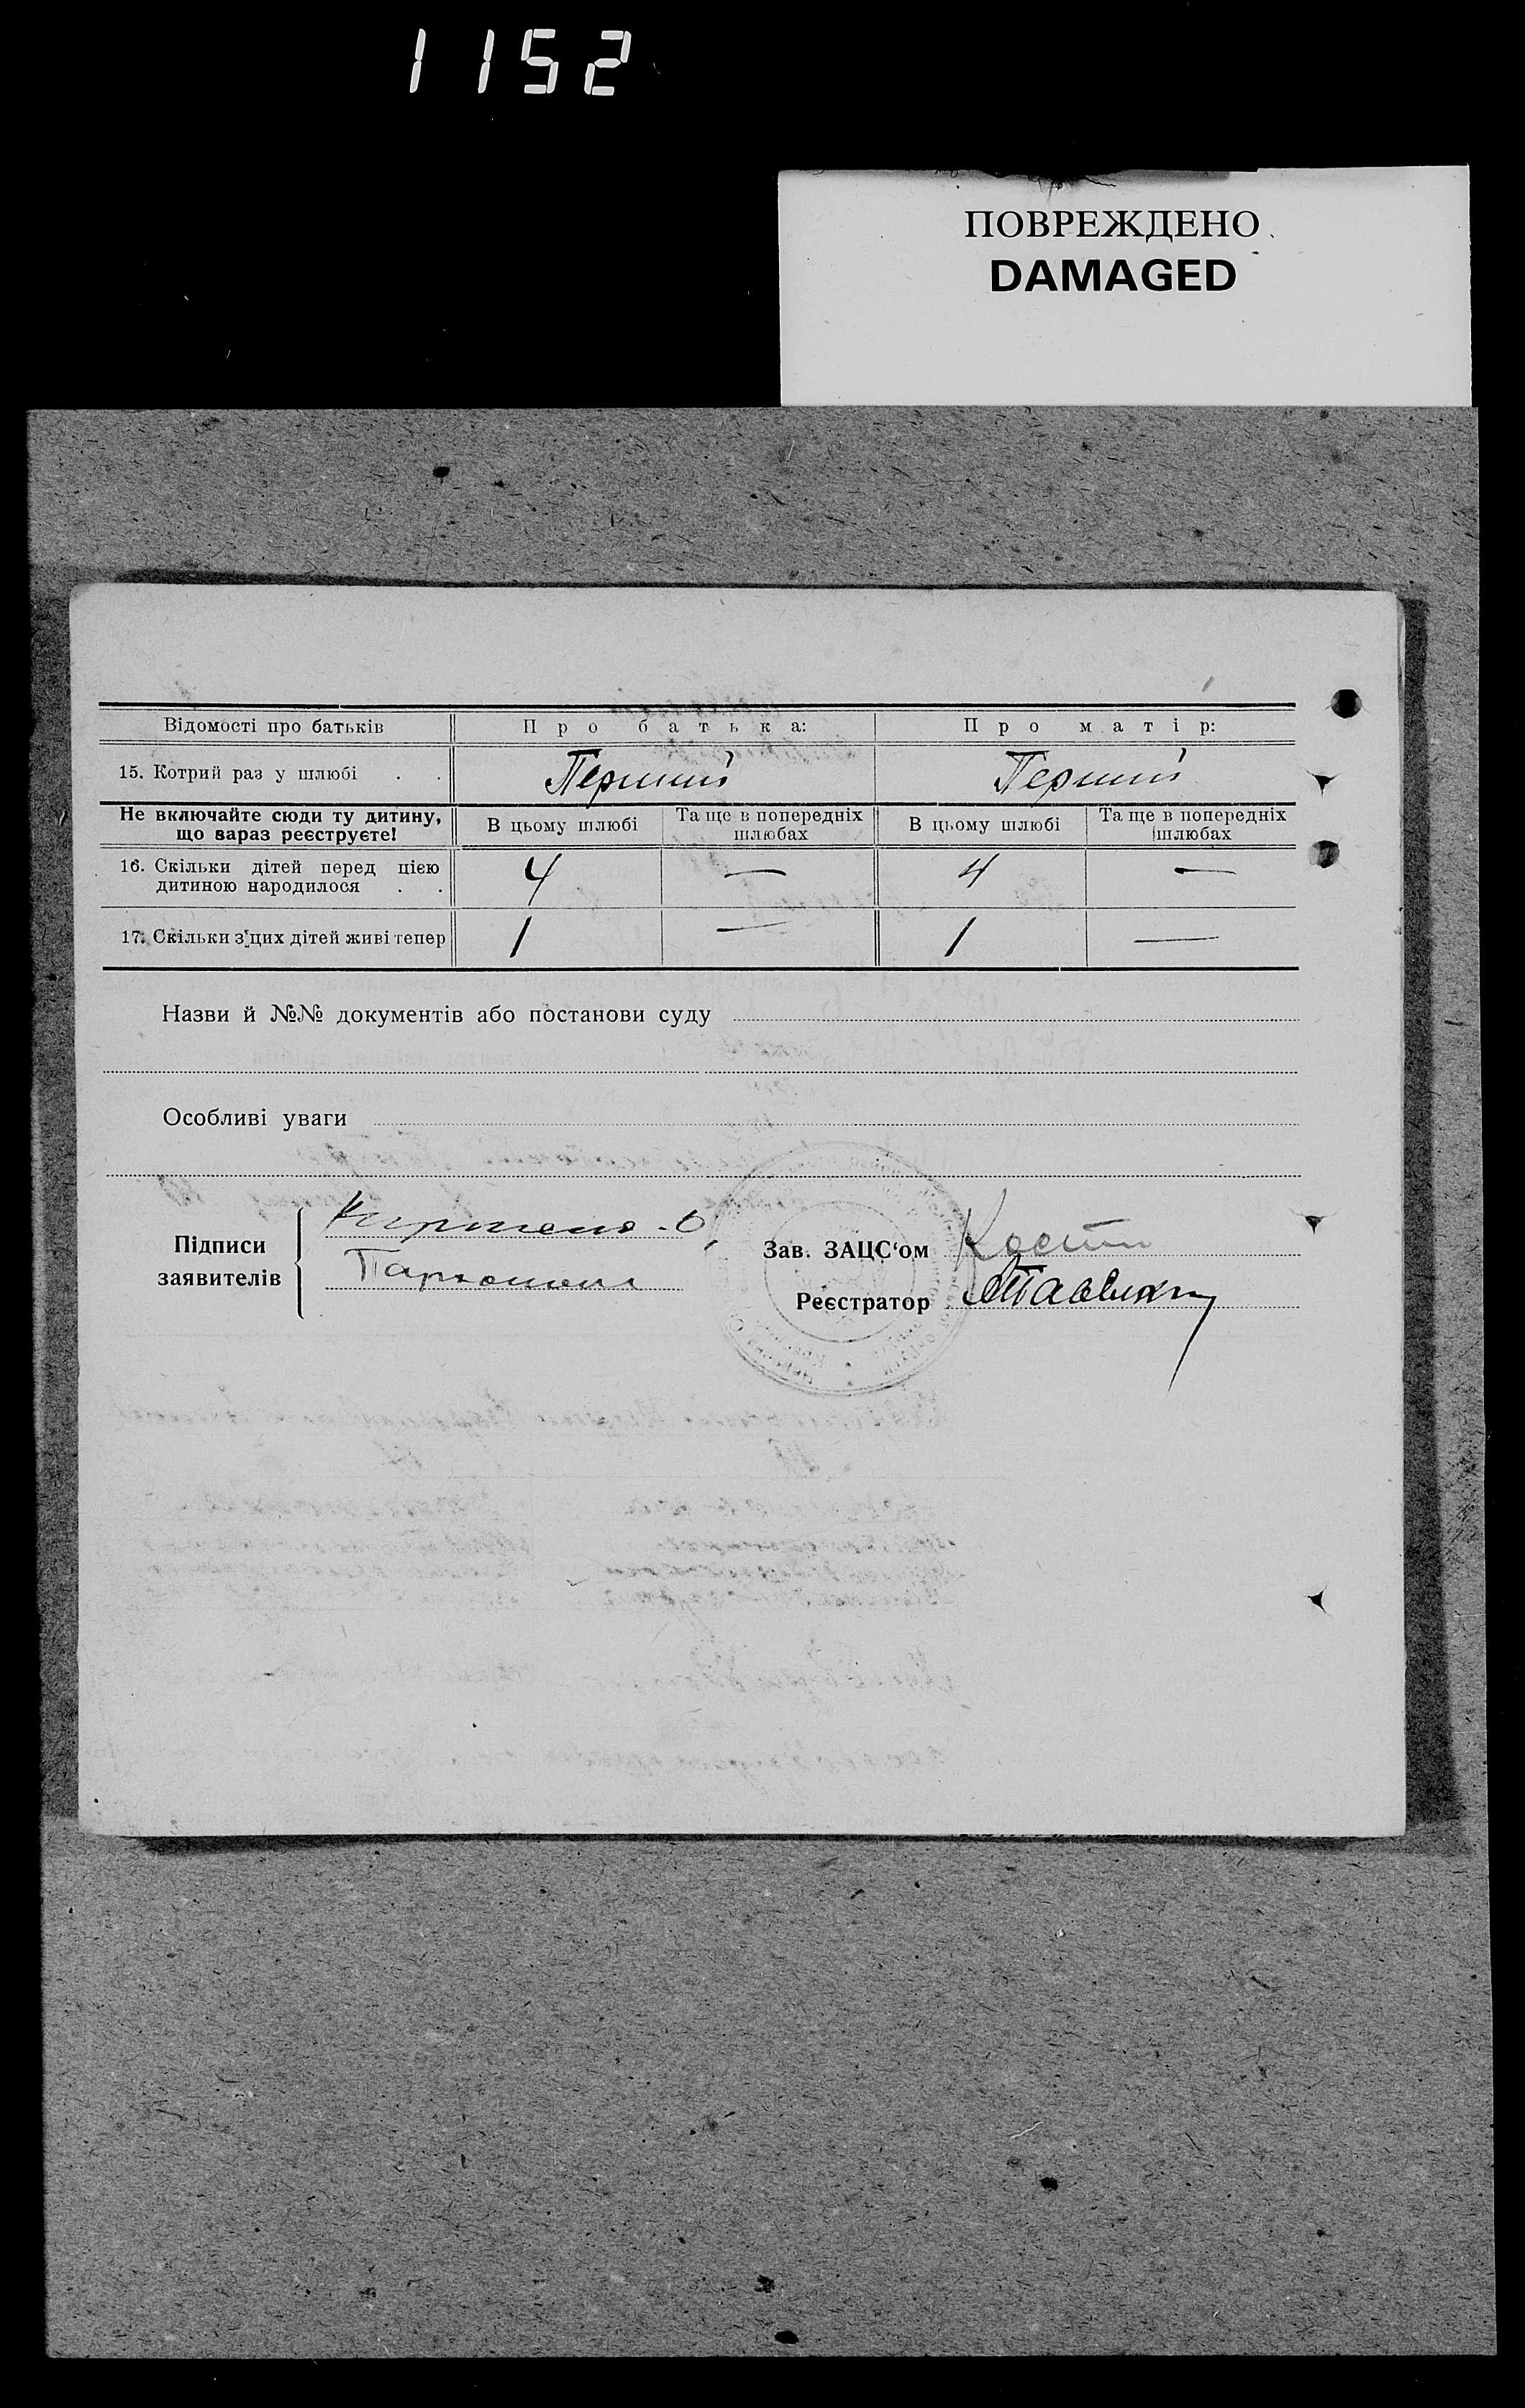 1152
ПОВРЕЖДЕНО
DAMAGED
Відомості про батьків Про батька: Про матір:
15. Котрий раз у шлюбі . . Перший Перший
Не включайте сюди ту дитину, що зараз реєструєте! В цьому шлюбі Та ще в попередніх шлюбах В цьому шлюбі Та ще в попередніх шлюбах
16. Скільки дітей перед цією
дитиною народилося . . 4 — 4 —
17. Скільки з'цих дітей живі тепер 1 — 1 —
Назви й №№ документів або постанови суду
Особливі уваги
Підписи
заявителів
Зав. ЗАЦС'ом
Реєстратор